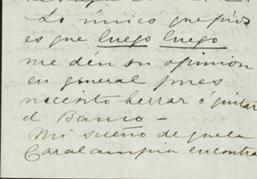 Lo único que pido
es que luego luego
me dén su opinión
en general pues
necesito herrar ó quitar
el Banco –
Mi sueño de que la
Caralampia encontra